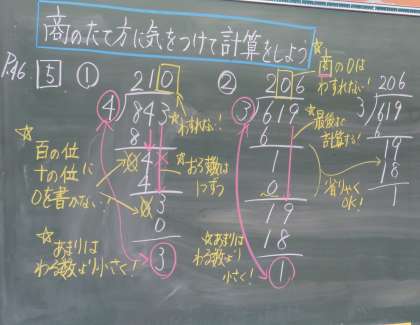 商のたて方に気をつけて計算をしよう
P.46 5 ①
210
4)843
8
4
4
3
0
3
☆わすれない!
☆百の位
十の位に
0を書かない!
☆おろす数は
1こずつ
☆あまりは
わる数より小さく!
②
206
3)619
6
1
0
19
18
1
☆商の0は
わすれない!
☆最後まで
計算する!
☆あまりは
わる数より
小さく!
206
3)619
6
19
18
1
省りゃく
OK!